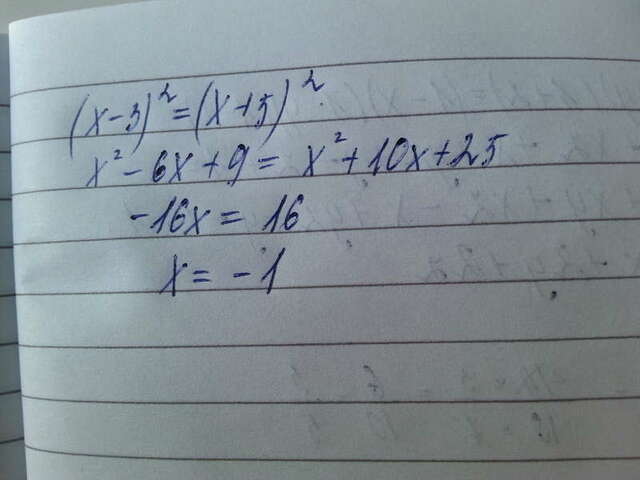 (x-3)² = (x+5)²
x² - 6x + 9 = x² + 10x + 25
-16x = 16
x = -1